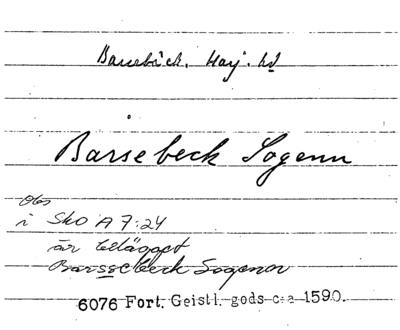 Barsebäck. Harj. hd
Bårsebeck Sogenn
Obs
i SkO A 7:24
är belägget
Barssebeck Sogenn
6076 Fort. Geistl. gods c:a 1590.